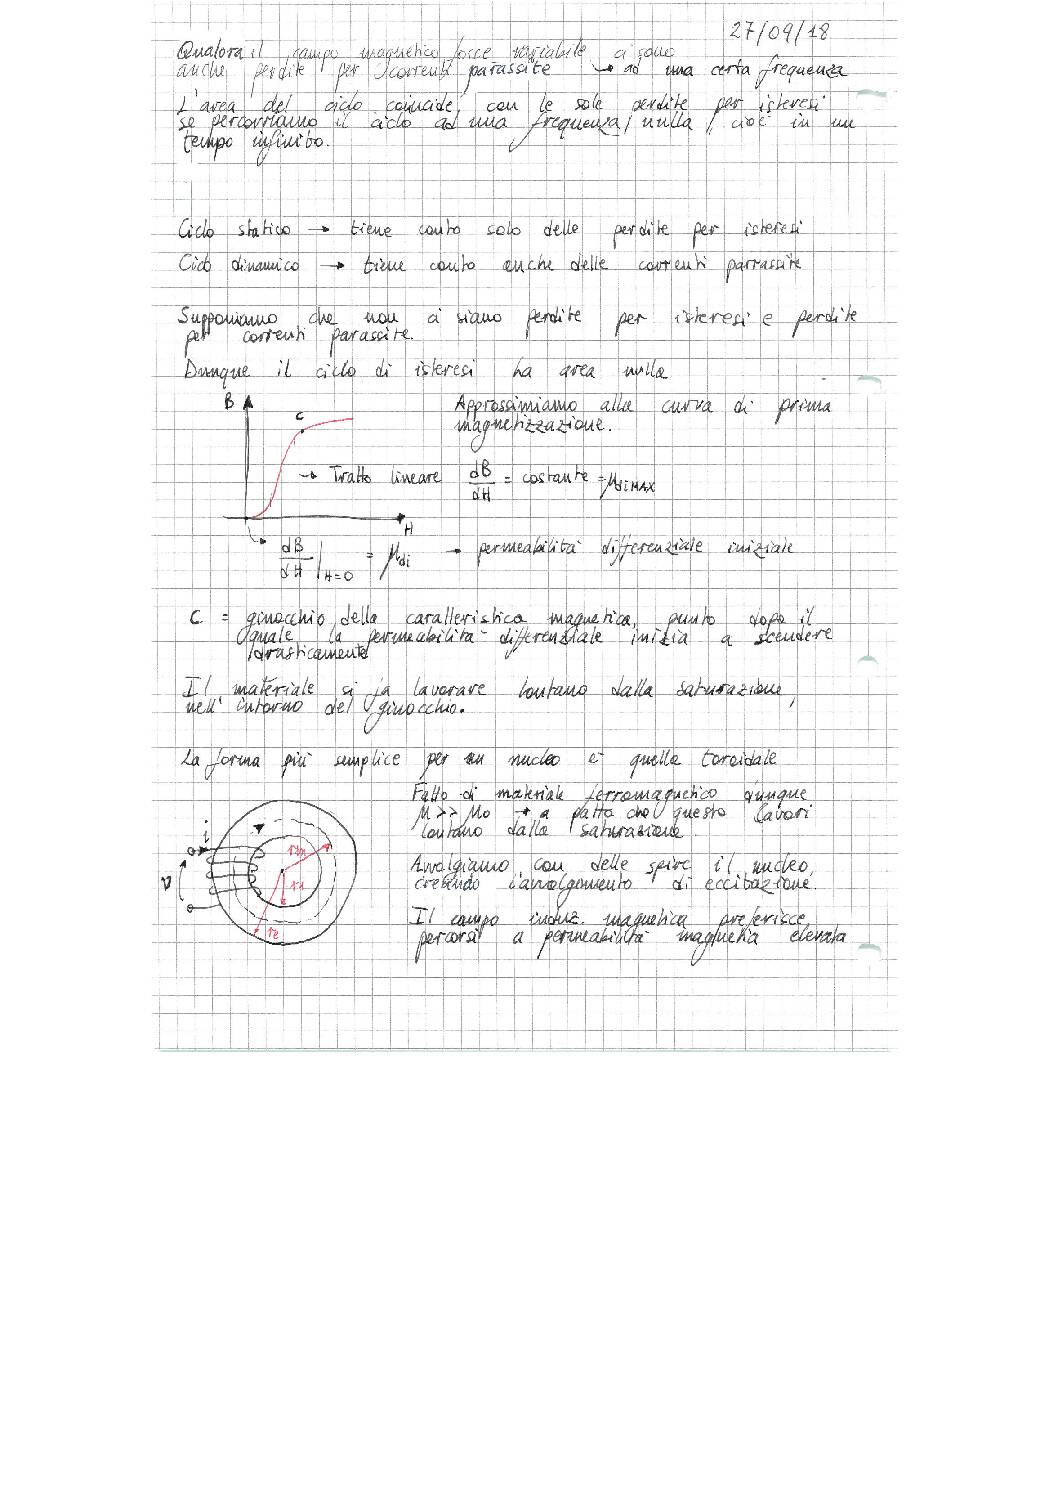 27/09/18
Qualora il campo magnetico fosse variabile ci sono
anche perdite per correnti parassite → ad una certa frequenza
L'area del ciclo coincide con le sole perdite per isteresi
se percorriamo il ciclo ad una frequenza nulla, cioè in un
tempo infinito.
Ciclo statico → tiene conto solo delle perdite per isteresi
Ciclo dinamico → tiene conto anche delle correnti parrassite
Supponiamo che non ci siano perdite per isteresi e perdite
per correnti parassite.
Dunque il ciclo di isteresi ha area nulla
B
C
Approssimiamo alla curva di prima
magnetizzazione.
→ Tratto lineare dB/dH = costante = μdiMAX
H
dB/dH |H=0 = μdi → permeabilità differenziale iniziale
C = ginocchio della caratteristica magnetica, punto dopo il
quale la permeabilità differenziale inizia a scendere
drasticamente
Il materiale si fa lavorare lontano dalla saturazione,
nell'intorno del ginocchio.
La forma più semplice per un nucleo è quella toroidale
Fatto di materiale ferromagnetico dunque
μ >> μ0 → a patto che questo lavori
lontano dalla saturazione
i
rm
v
ri
re
Avvolgiamo con delle spire il nucleo,
creando l'avvolgimento di eccitazione.
Il campo induz. magnetica preferisce
percorsi a permeabilità magnetia elevata